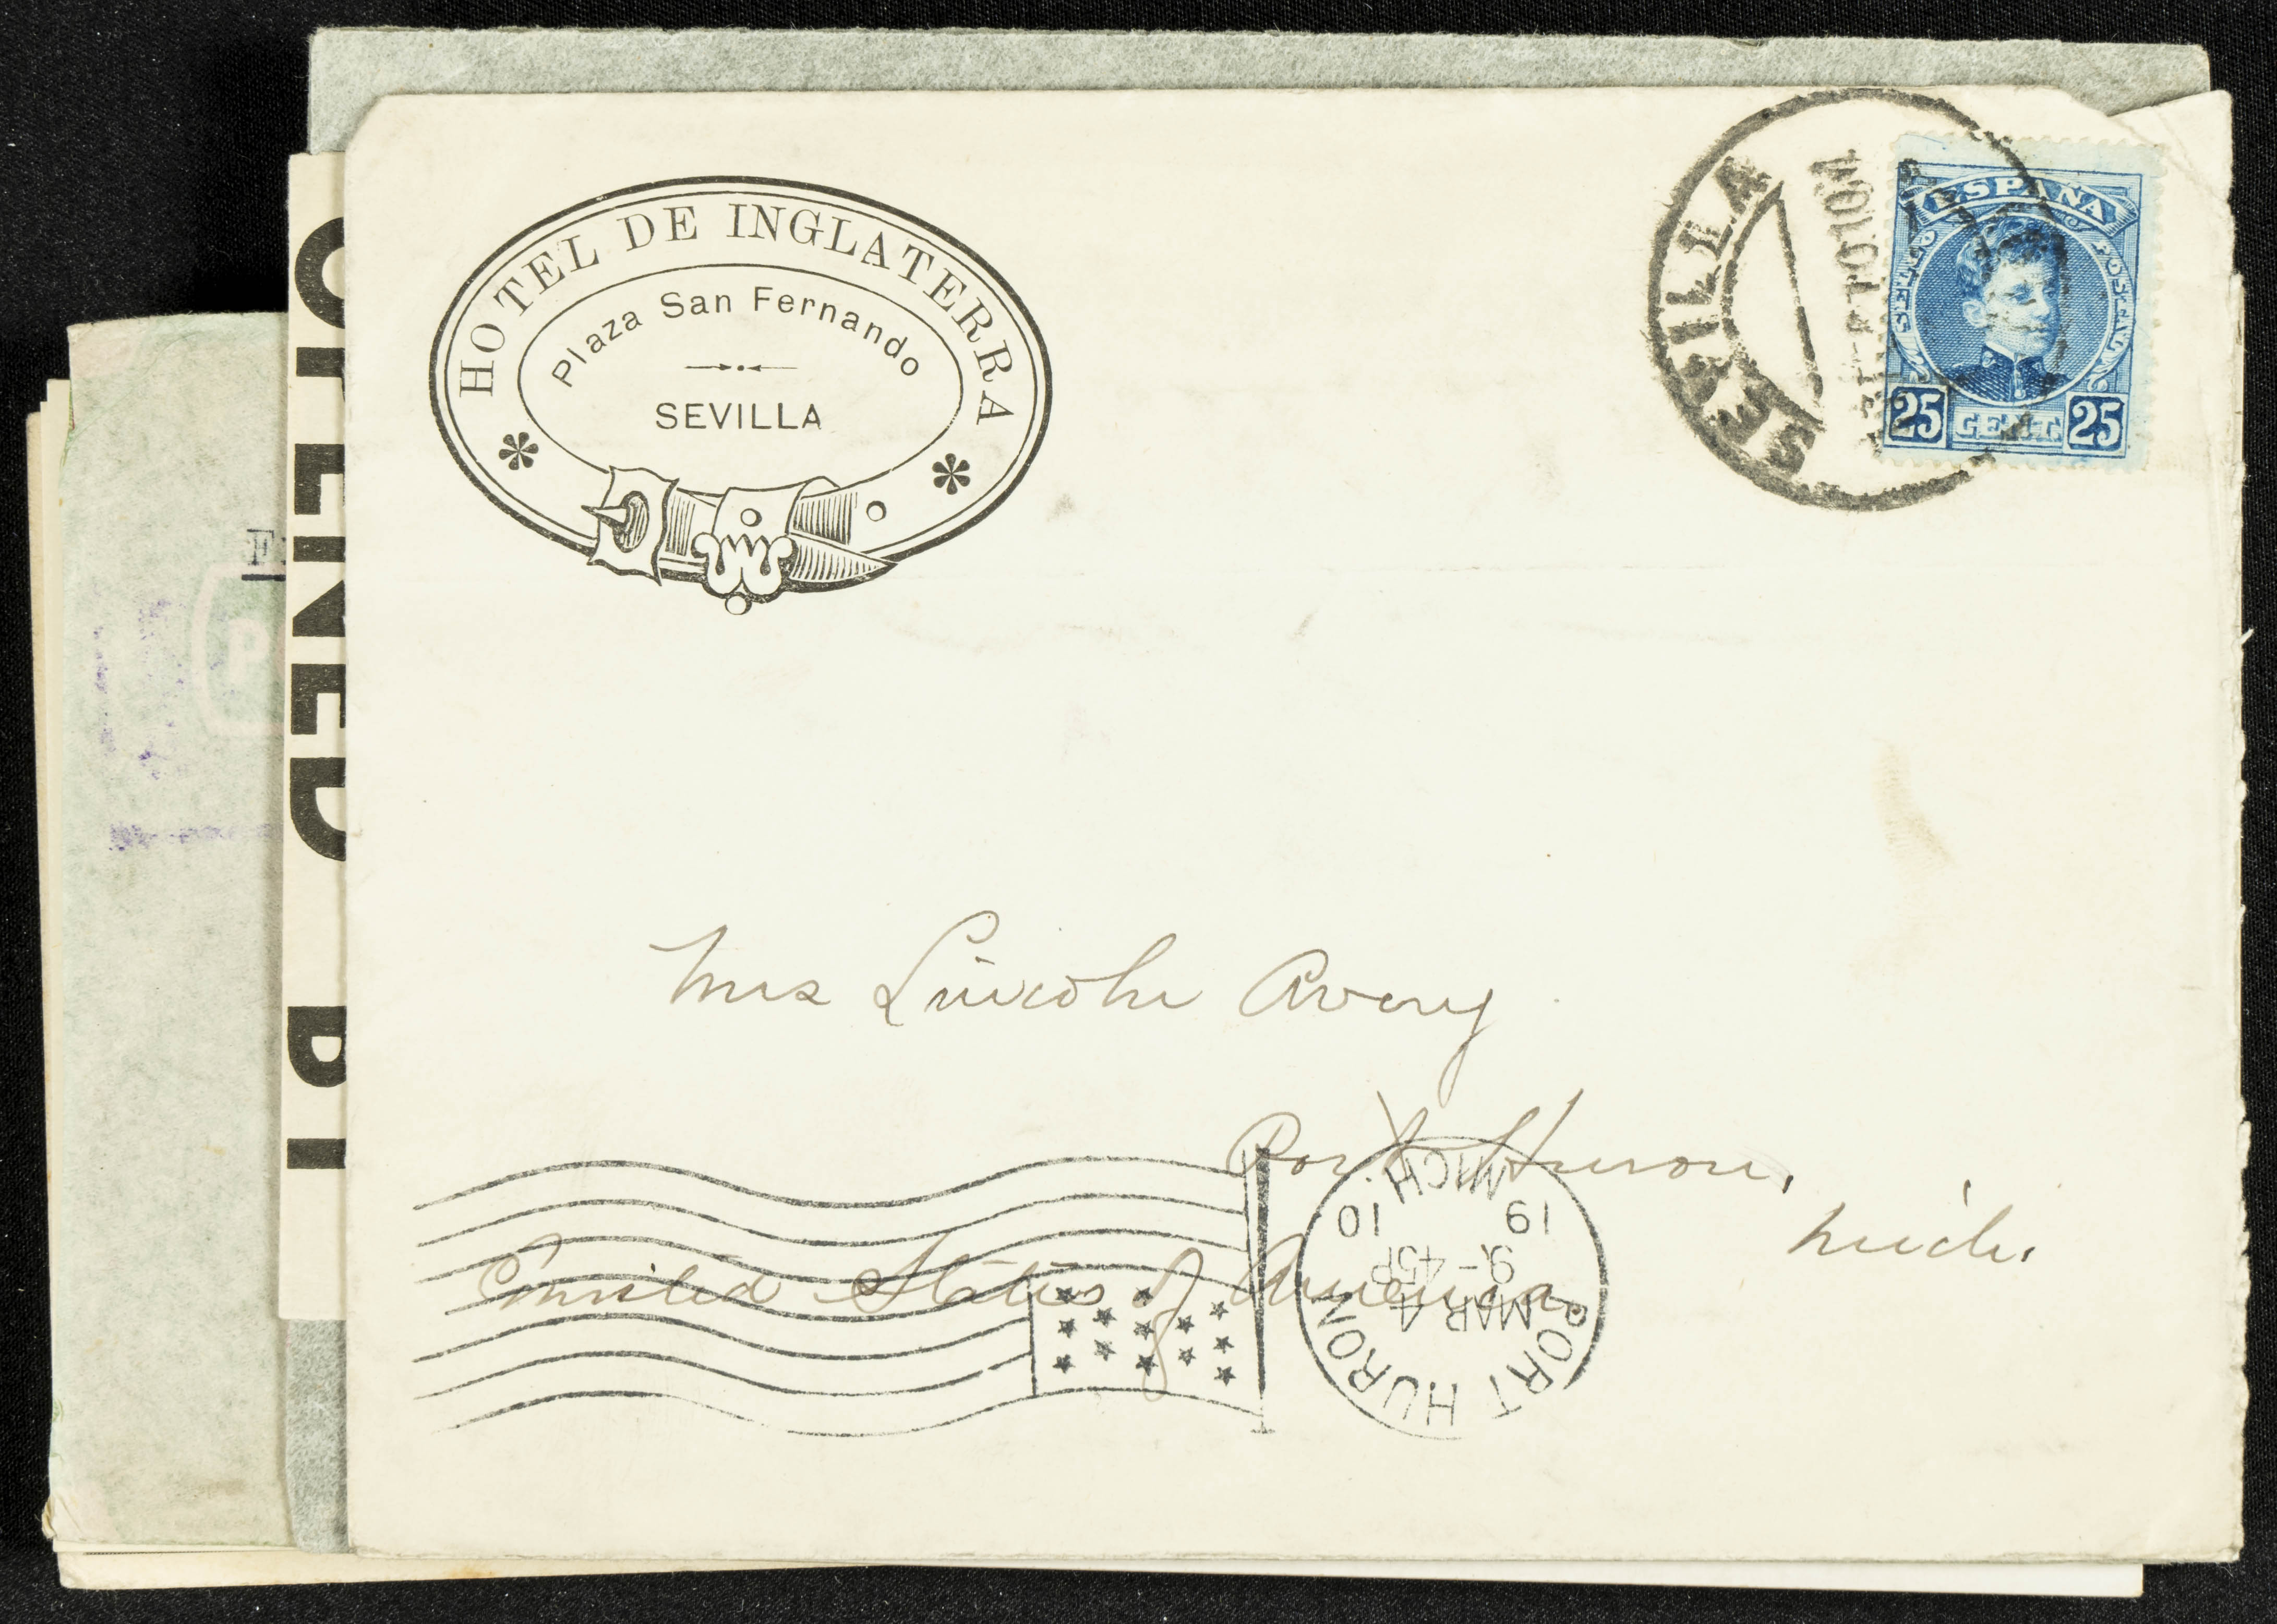 HOTEL DE INGLATERRA
Plaza San Fernando
SEVILLA
SEVILLA
ESPAÑA
SELLO POSTAL
25 CENT. 25
OPENED BY
P
Mrs Lincoln Avery
Port Huron,
Mich.
United States of America
PORT HURON
MAR 4
9-45P
19 10
MICH.